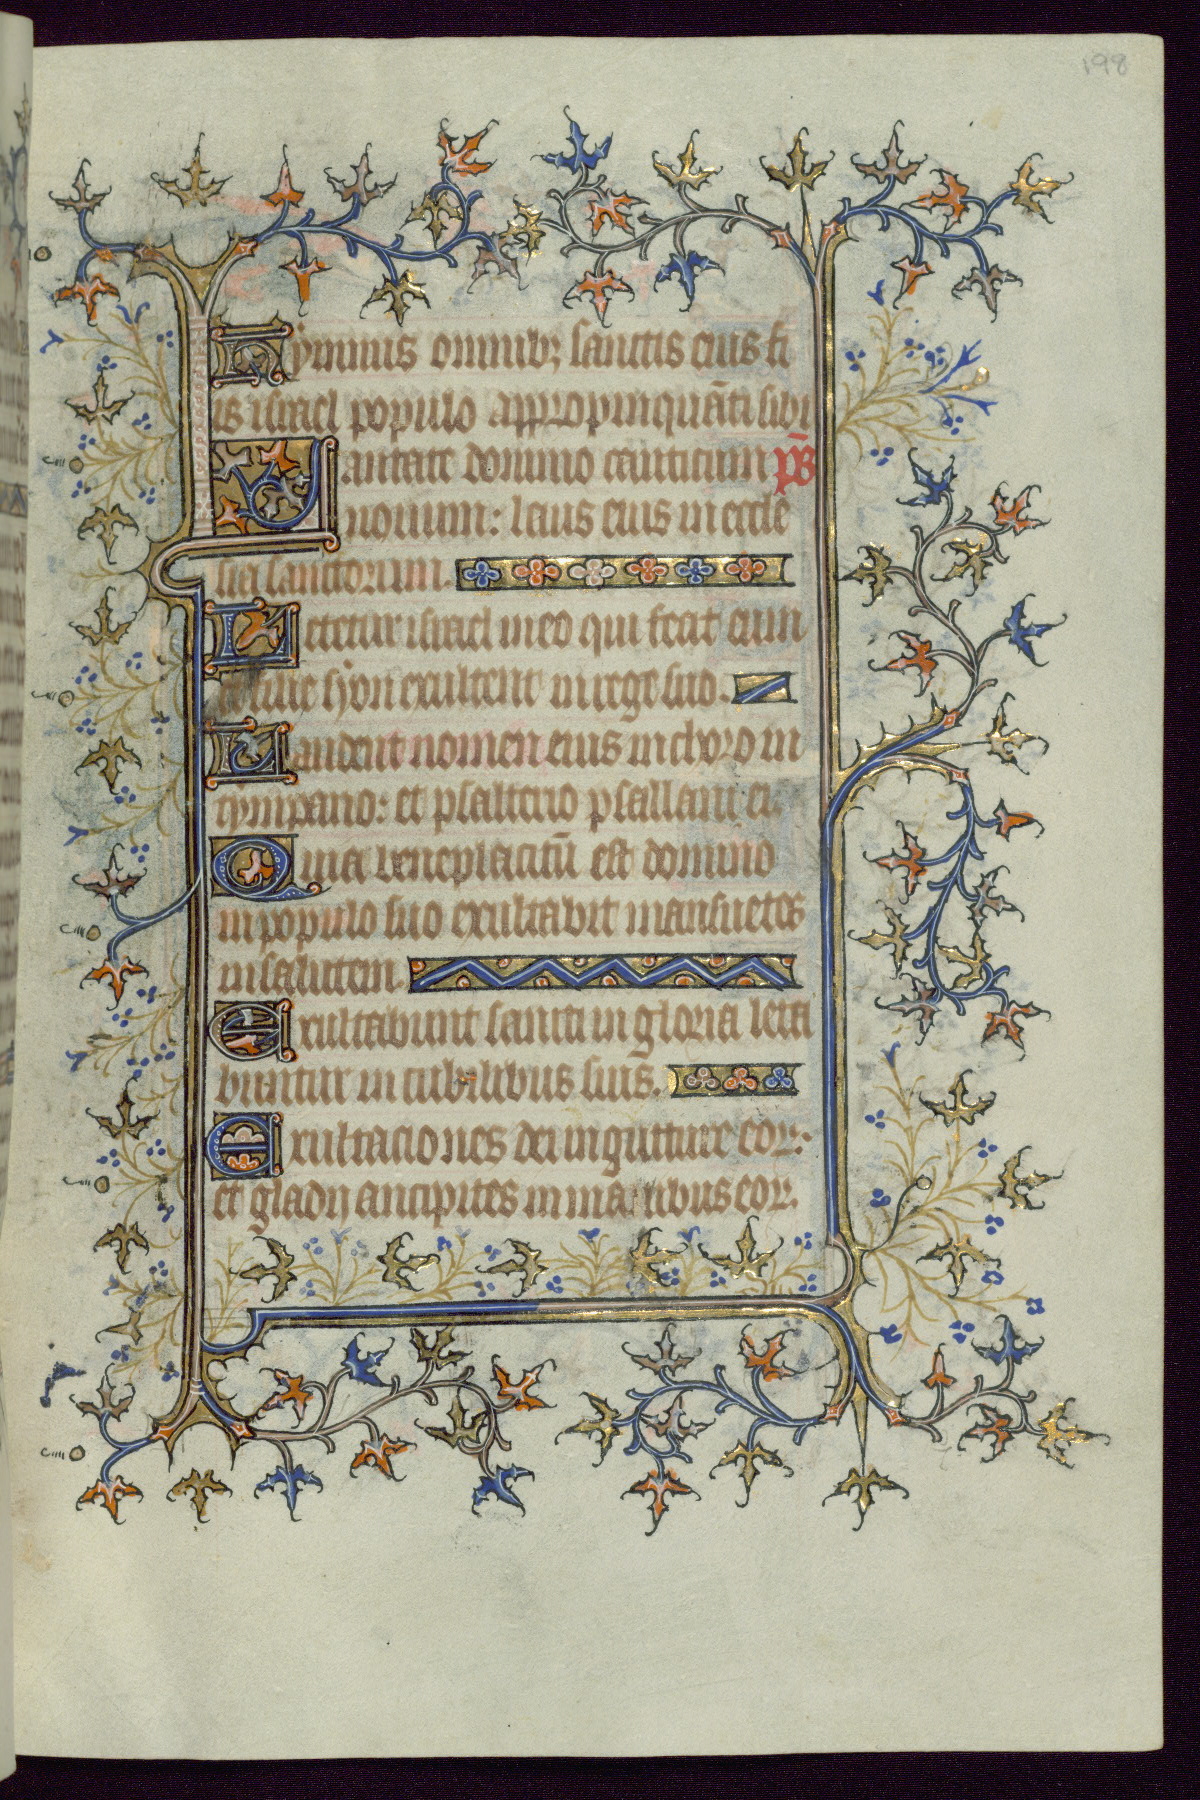 198
Hymnus omnibꝫ sanctis eius fi
is israel populo appropinquāti sibi
Cantate domino canticum p̄s
nouum: laus eius in eccle
sia sanctorum.
Letetur israel in eo qui fecit eum
et filie syon exultent in rege suo.
Laudent nomen eius in choro in
tympano: et psalterio psallant ei.
Quia beneplacitū est domino
in populo suo exultabit mansuetos
in salutem.
Exultabunt sancti in gloria leta
buntur in cubilibus suis.
Exultaciones dei in gutture eoꝝ:
et gladij ancipites in manibus eoꝝ.